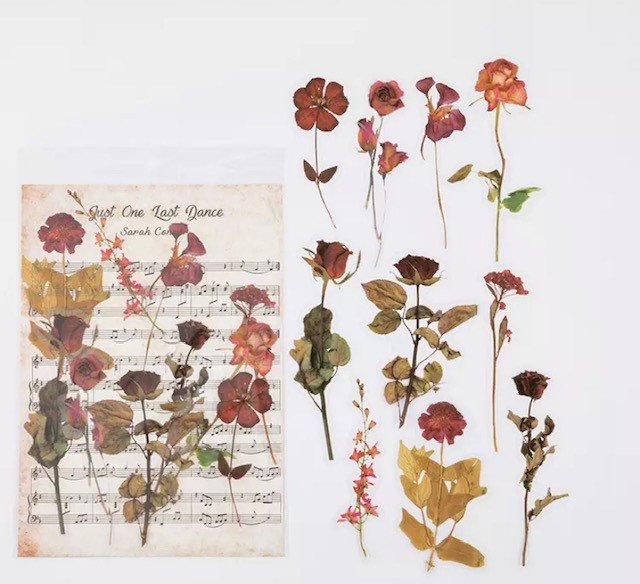 Just One Last Dance
Sarah